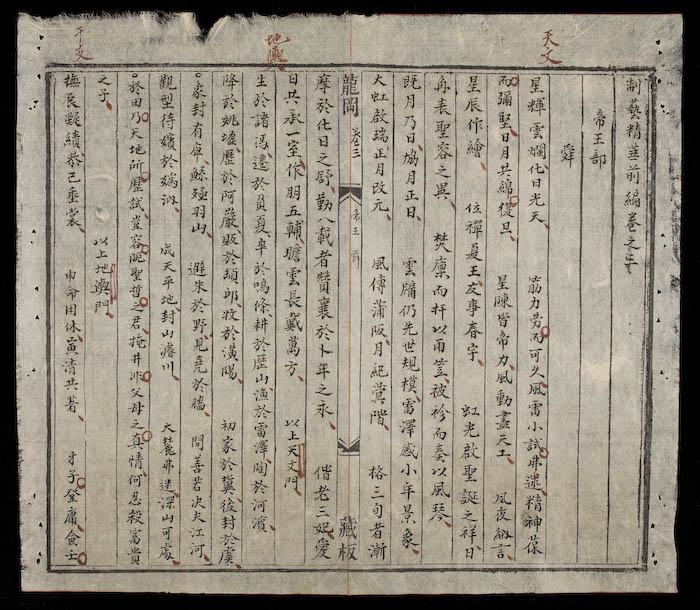 天文
地輿
干支
制藝精華前編卷之三
帝王部
舜
星輝雲爛化日光天 筋力勞而可久風雷小試弗迷精神葆
而彌堅日月共綿復旦 星陳皆帝力風動盡天工 夙夜納言
星辰作繪 位禪夏王友事春 虹光啟聖誕之祥日
角表聖容之異 焚廩而扞以雨笠被袗而奏以風琴
既月乃日協月正日 雲牖仍先世規模雷澤感小年景象
大虹啟瑞正月改元 風傳蒲阪月紀蓂階 格三旬者漸
龍岡 卷三 帝王 舜 藏板
摩於化日之舒勤八載者贊襄於卜年之永 偕老三妃愛
日共承一室作朋五輔瞻雲長戴萬方 以上天文門
生於諸馮遷於負夏卒於鳴條耕於歷山漁於雷澤陶於河濱
降於姚墟歷於阿巖販於頓邱牧於潢陽 初家於冀後封於虞
象封有庳鯀殛羽山 避朱於野見堯於牆 問善若决夫江河
觀型待嬪於媯汭 成天平地封山濬川 大麓弗迷深山可處
於田乃天地所歷試豈容昵聖哲之君掩井非父母之真情何忍殺富貴
之子 以上地輿門
撫辰凝績恭己垂裳 申命用休黃清共著 才子登庸僉壬